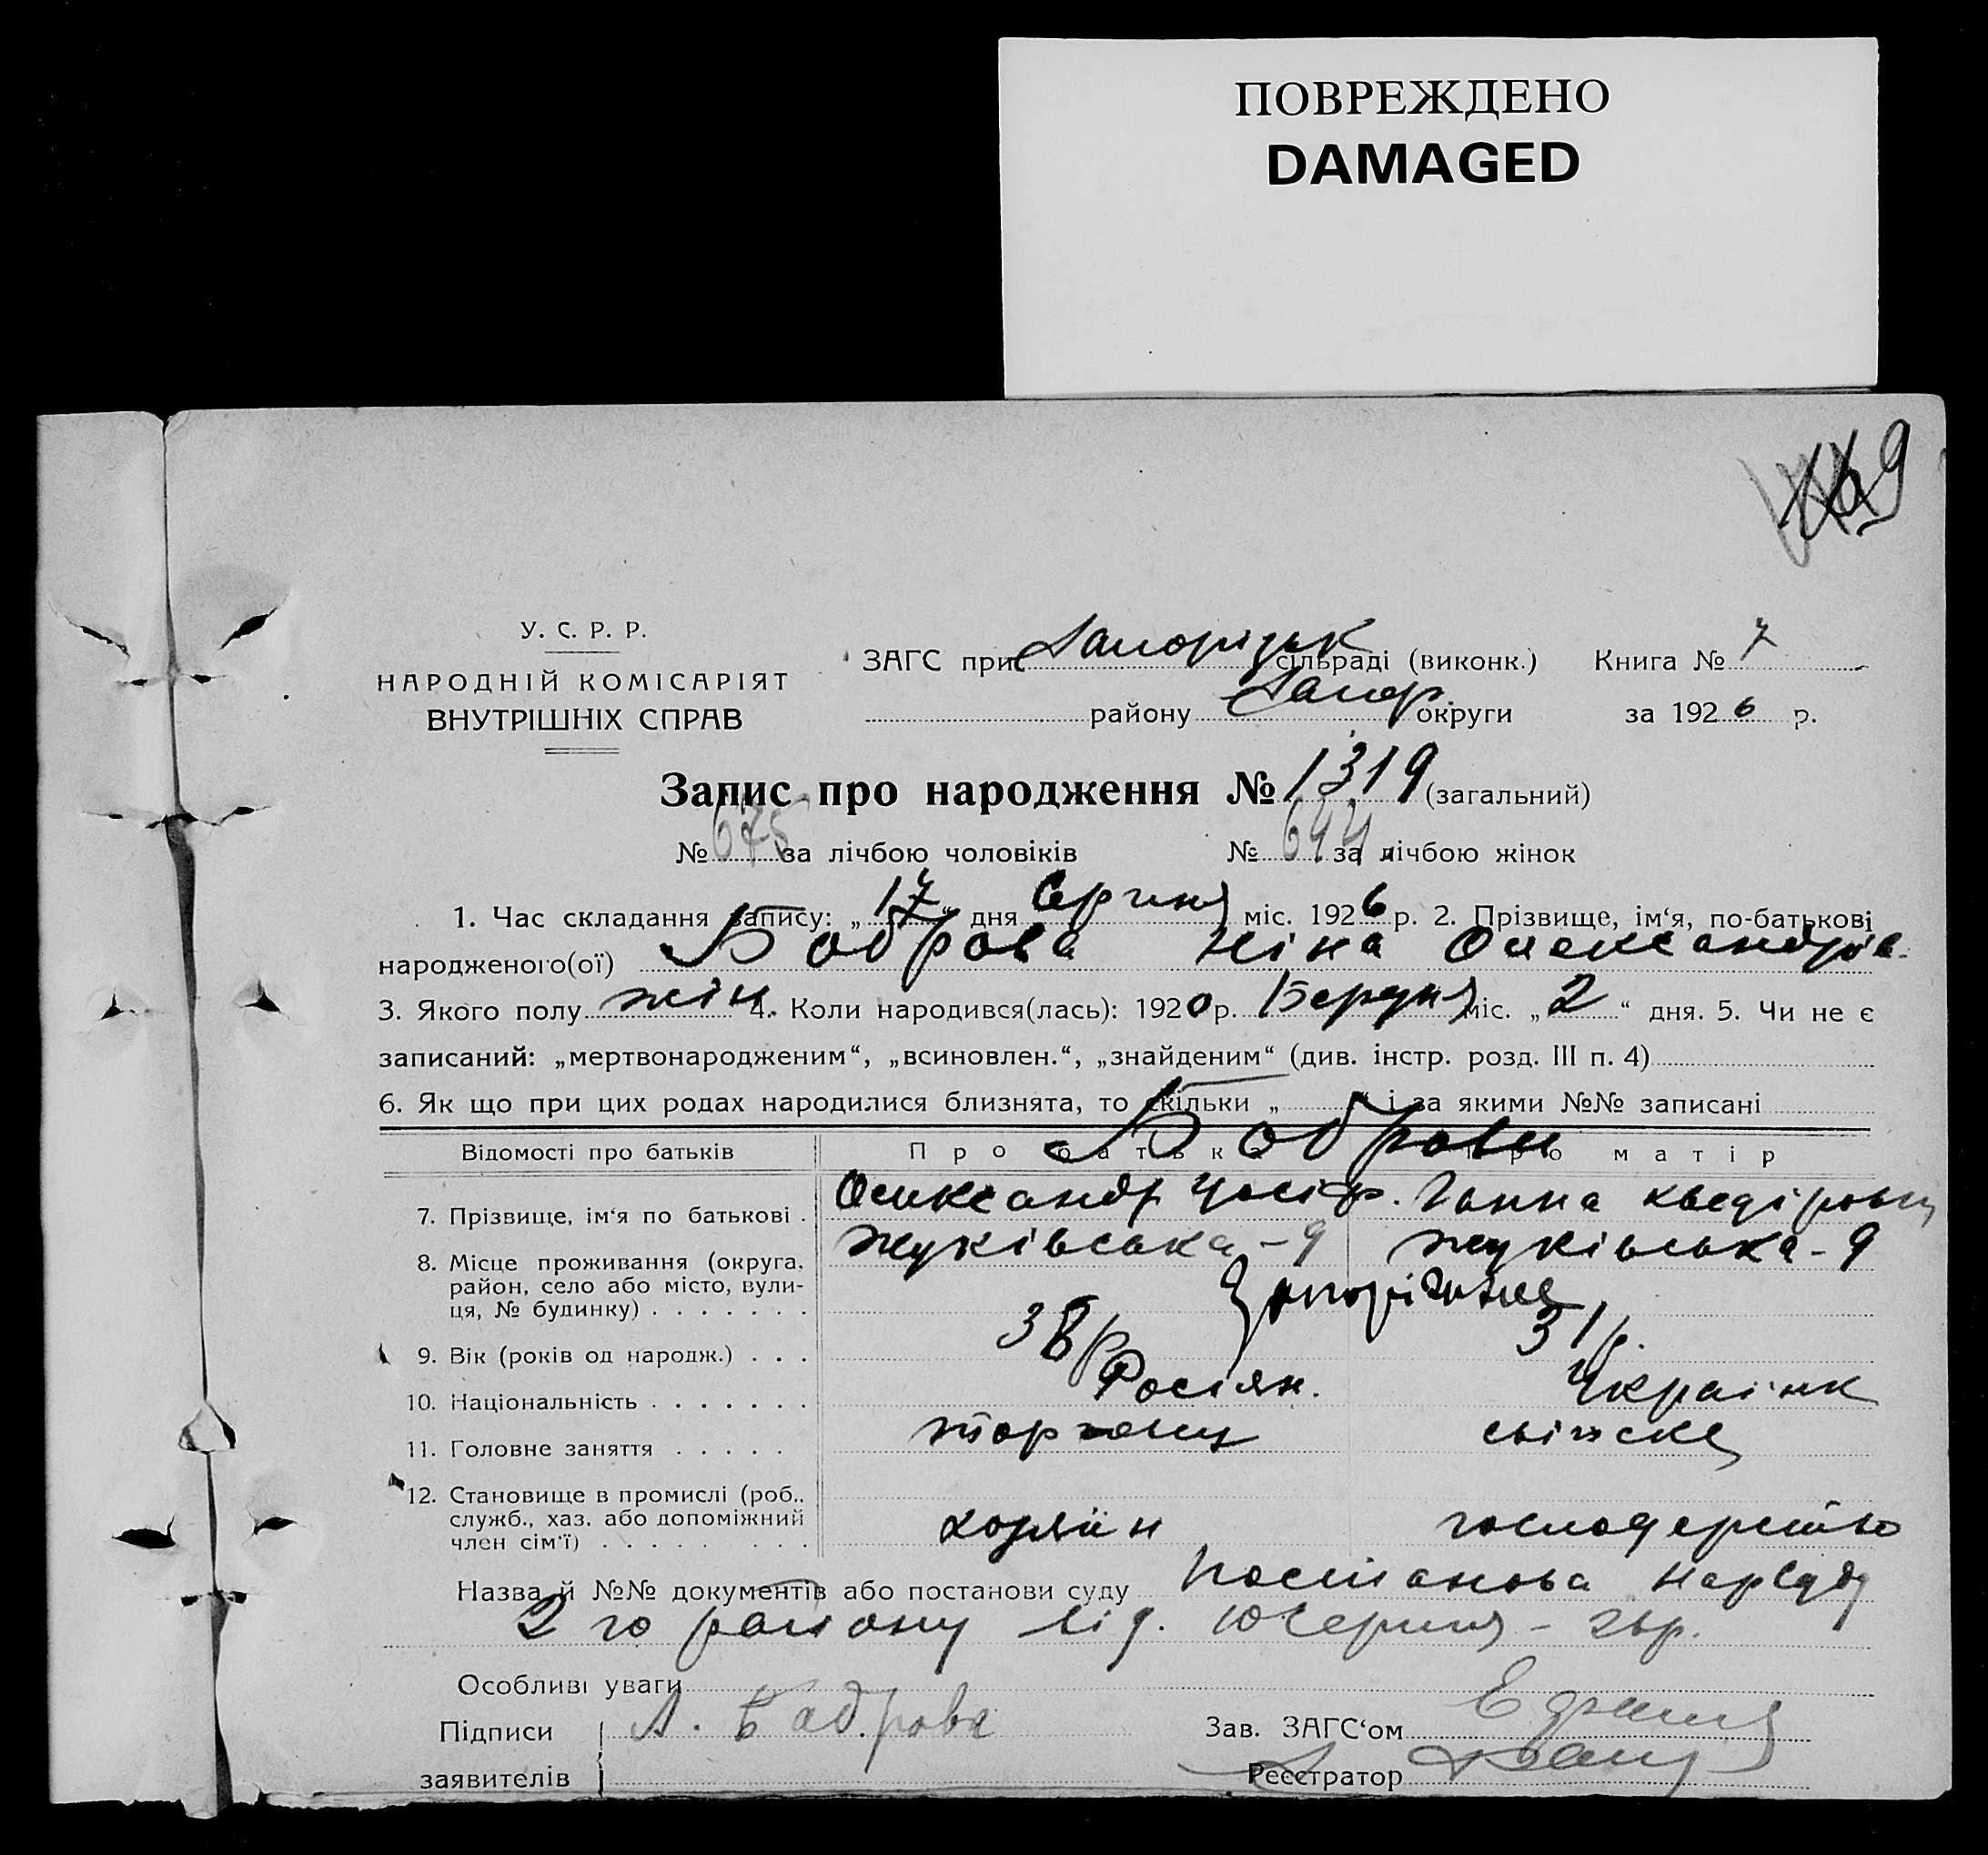 ПОВРЕЖДЕНО
DAMAGED
169
У. С. Р. Р.
НАРОДНІЙ КОМІСАРІЯТ
ВНУТРІШНІХ СПРАВ
ЗАГС при Запорізьк сільраді (виконк.) Книга № 7
району Запор. округи за 1926 р.
Запис про народження № 1319 (загальний)
№ 675 за лічбою чоловіків № 644 за лічбою жінок
1. Час складання запису: „17“ дня Серпня міс. 1926 р. 2. Прізвище, ім‘я, по-батькові
народженого(ої) Боброва Ніна Олександрів.
3. Якого полу жін. 4. Коли народився(лась): 1920 р. Березня міс. „2“ дня. 5. Чи не є
записаний: „мертвонародженим“, „всиновлен.“, „знайденим“ (див. інстр. розд. III п. 4)
6. Як що при цих родах народилися близнята, то скільки „ “ і за якими №№ записані
Відомості про батьків Про батька Про матір
Боброви
7. Прізвище, ім‘я по батькові . Олександр Йосіф. Ганна
8. Місце проживання (округа, Жуківська - 9 Жуківська - 9
район, село або місто, вули-
ця, № будинку) . . . . . . . Запоріжжя
9. Вік (років од народж.) . . . 38 р. 31 р.
10. Національність . . . . . . . Росіян. Українк
11. Головне заняття . . . . .
12. Становище в промислі (роб.,
служб., хаз. або допоміжний
член сім‘ї) . . . . . . . . хазяїн господарство
Назва й №№ документів або постанови суду Постанова Нарсуду
2 го району від. 10 Серпня - 26 р.
Особливі уваги
Підписи А. Баброва Зав. ЗАГС‘ом
заявителів Реєстратор